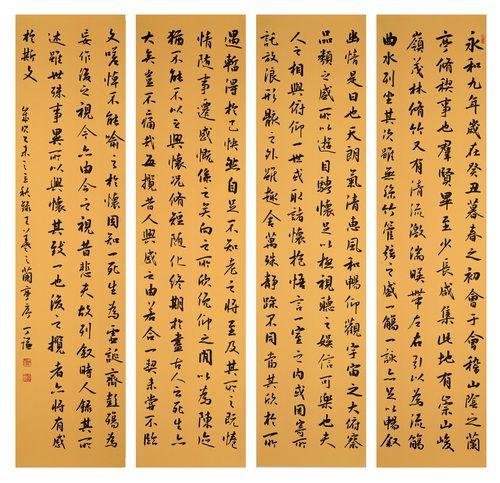 永和九年歲在癸丑暮春之初會于會稽山陰之蘭
亭脩禊事也群賢畢至少長咸集此地有崇山峻
嶺茂林脩竹又有清流激湍暎帶左右引以為流觴
曲水列坐其次雖無絲竹管弦之盛一觴一詠亦足以暢叙
幽情是日也天朗氣清惠風和暢仰觀宇宙之大俯察
品類之盛所以遊目騁懷足以極視聽之娛信可樂也夫
人之相與俯仰一世或取諸懷抱悟言一室之內或因寄所
託放浪形骸之外雖趣舍萬殊靜躁不同當其欣於所
遇暫得於己快然自足不知老之將至及其所之既惓
情隨事遷感慨係之矣向之所欣俛仰之間以為陳迹
猶不能不以之興懷況脩短隨化終期於盡古人云死生亦
大矣豈不痛哉每攬昔人興感之由若合一契未嘗不臨
文嗟悼不能喻之於懷固知一死生為虛誕齊彭殤為
妄作後之視今亦由今之視昔悲夫故列叙時人錄其所
述雖世殊事異所以興懷其致一也後之攬者亦將有感
於斯文 歲次乙未之立秋錄王羲之蘭亭序